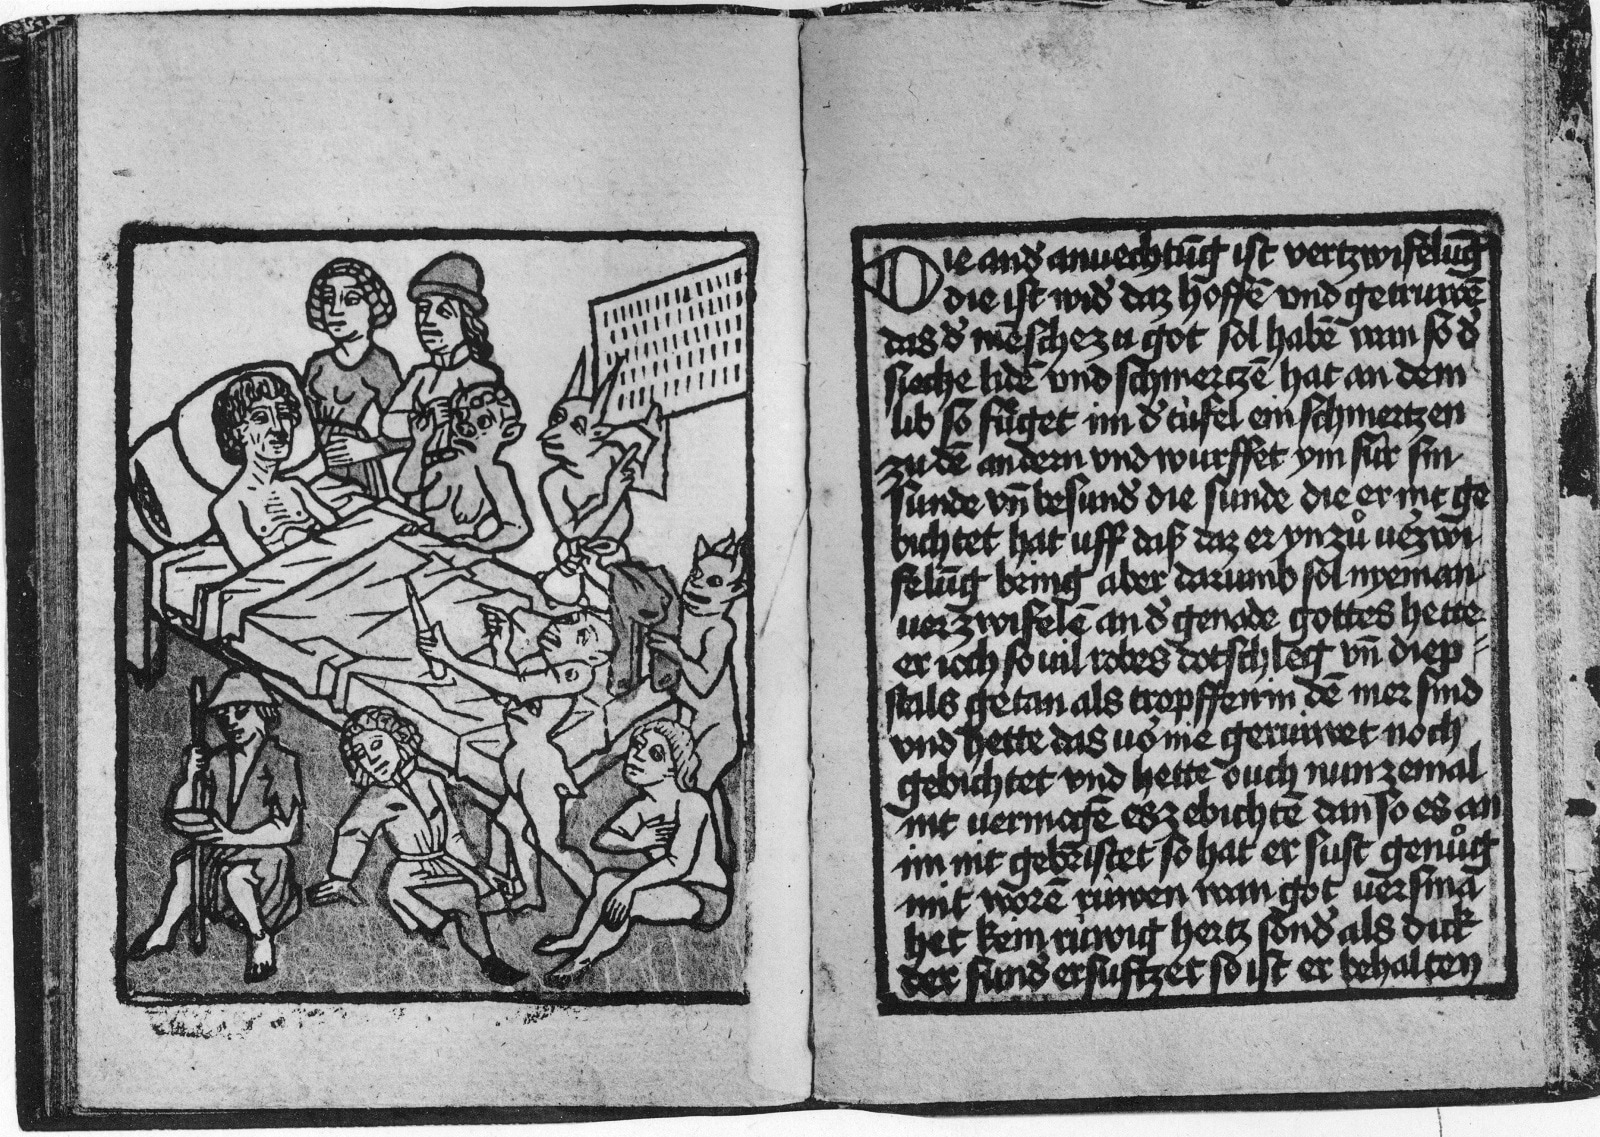 Die and̛ anuechtūg ist vertzwifelūg
die ist wid̛ daz hoffē vnd getruwē
das d̛ mēsche zu got sol habē wan so d̛
sieche lidē vnd schmertzē hat an dem
lib so fu̍get im d̛ tüfel ein schmertzen
zu dē andern vnd wurffet ym für sin
sunde vn̄ besund̛ die sunde die er nit ge
bichtet hat uff daß daz er yn zů
felūg bring aber darumb sol nyeman
uerzwifelē an d̛ genade gottes hette
er ioch so uil robes dotschleg vn̄ diep
stals getan als tropffen in dē mer sind
vnd hette das nie geruwet noch
gebichtet vnd hette ouch nun zemal
nit uermogē es ze bichtē dan so es an
im nit gebristet so hat er sust genůg
mit worē ruwen wan got uersma
het kein ruwig hertz sond̛ als dick
der sund̛ ersuftzet so ist er behalten